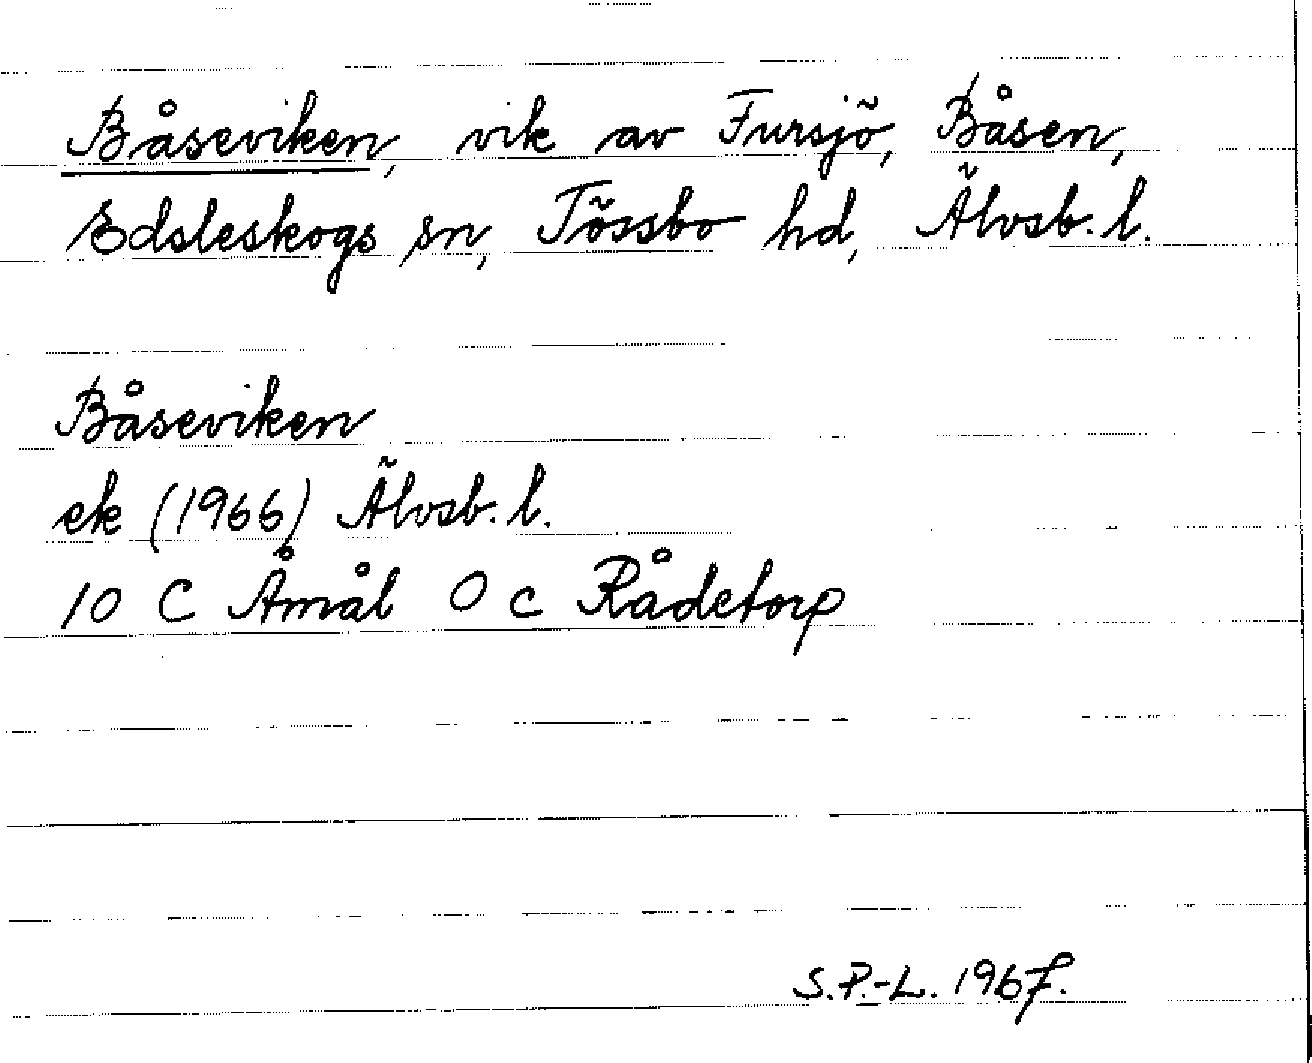 Båseviken, vik av Fursjö, Båsen,
Edsleskogs sn, Tössbo hd, Älvsb. l.
Båseviken
ek (1966) Älvsb. l.
10 C Åmål 0 c Rådetorp
S.P.-L. 1967.